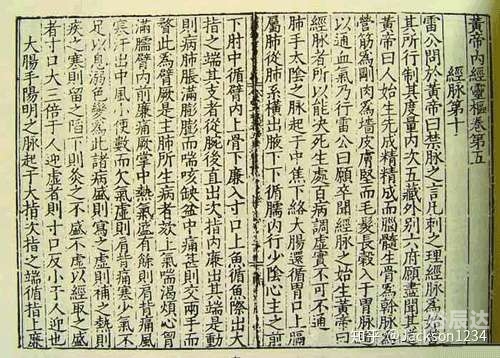 黃帝內經靈樞卷第五
經脉第十
雷公問於黃帝曰禁脉之言凡刺之理經脉爲始營
其所行制其度量內次五藏外別六府願盡聞其道
黃帝曰人始生先成精精成而腦髓生骨爲幹脉爲
營筋爲剛肉爲墻皮膚堅而毛髮長穀入于胃脉道
以通血氣乃行雷公曰願卒聞經脉之始生黃帝曰
經脉者所以能決死生處百病調虛實不可不通
肺手太陰之脉起于中焦下絡大腸還循胃口上膈
屬肺從肺系橫出腋下下循臑內行少陰心主之前
下肘中循臂內上骨下廉入寸口上魚循魚際出大
指之端其支者從腕後直出次指內廉出其端是動
則病肺脹滿膨膨而喘咳缺盆中痛甚則交兩手而
瞀此爲臂厥是主肺所生病者欬上氣喘渴煩心胷
滿臑臂內前廉痛厥掌中熱氣盛有餘則肩背痛風
寒汗出中風小便數而欠氣虛則肩背痛寒少氣不
足以息溺色變爲此諸病盛則寫之虛則補之熱則
疾之寒則留之陷下則灸之不盛不虛以經取之盛
者寸口大三倍于人迎虛者則寸口反小于人迎也
大腸手陽明之脉起于大指次指之端循指上廉
知乎 @Jackson1234